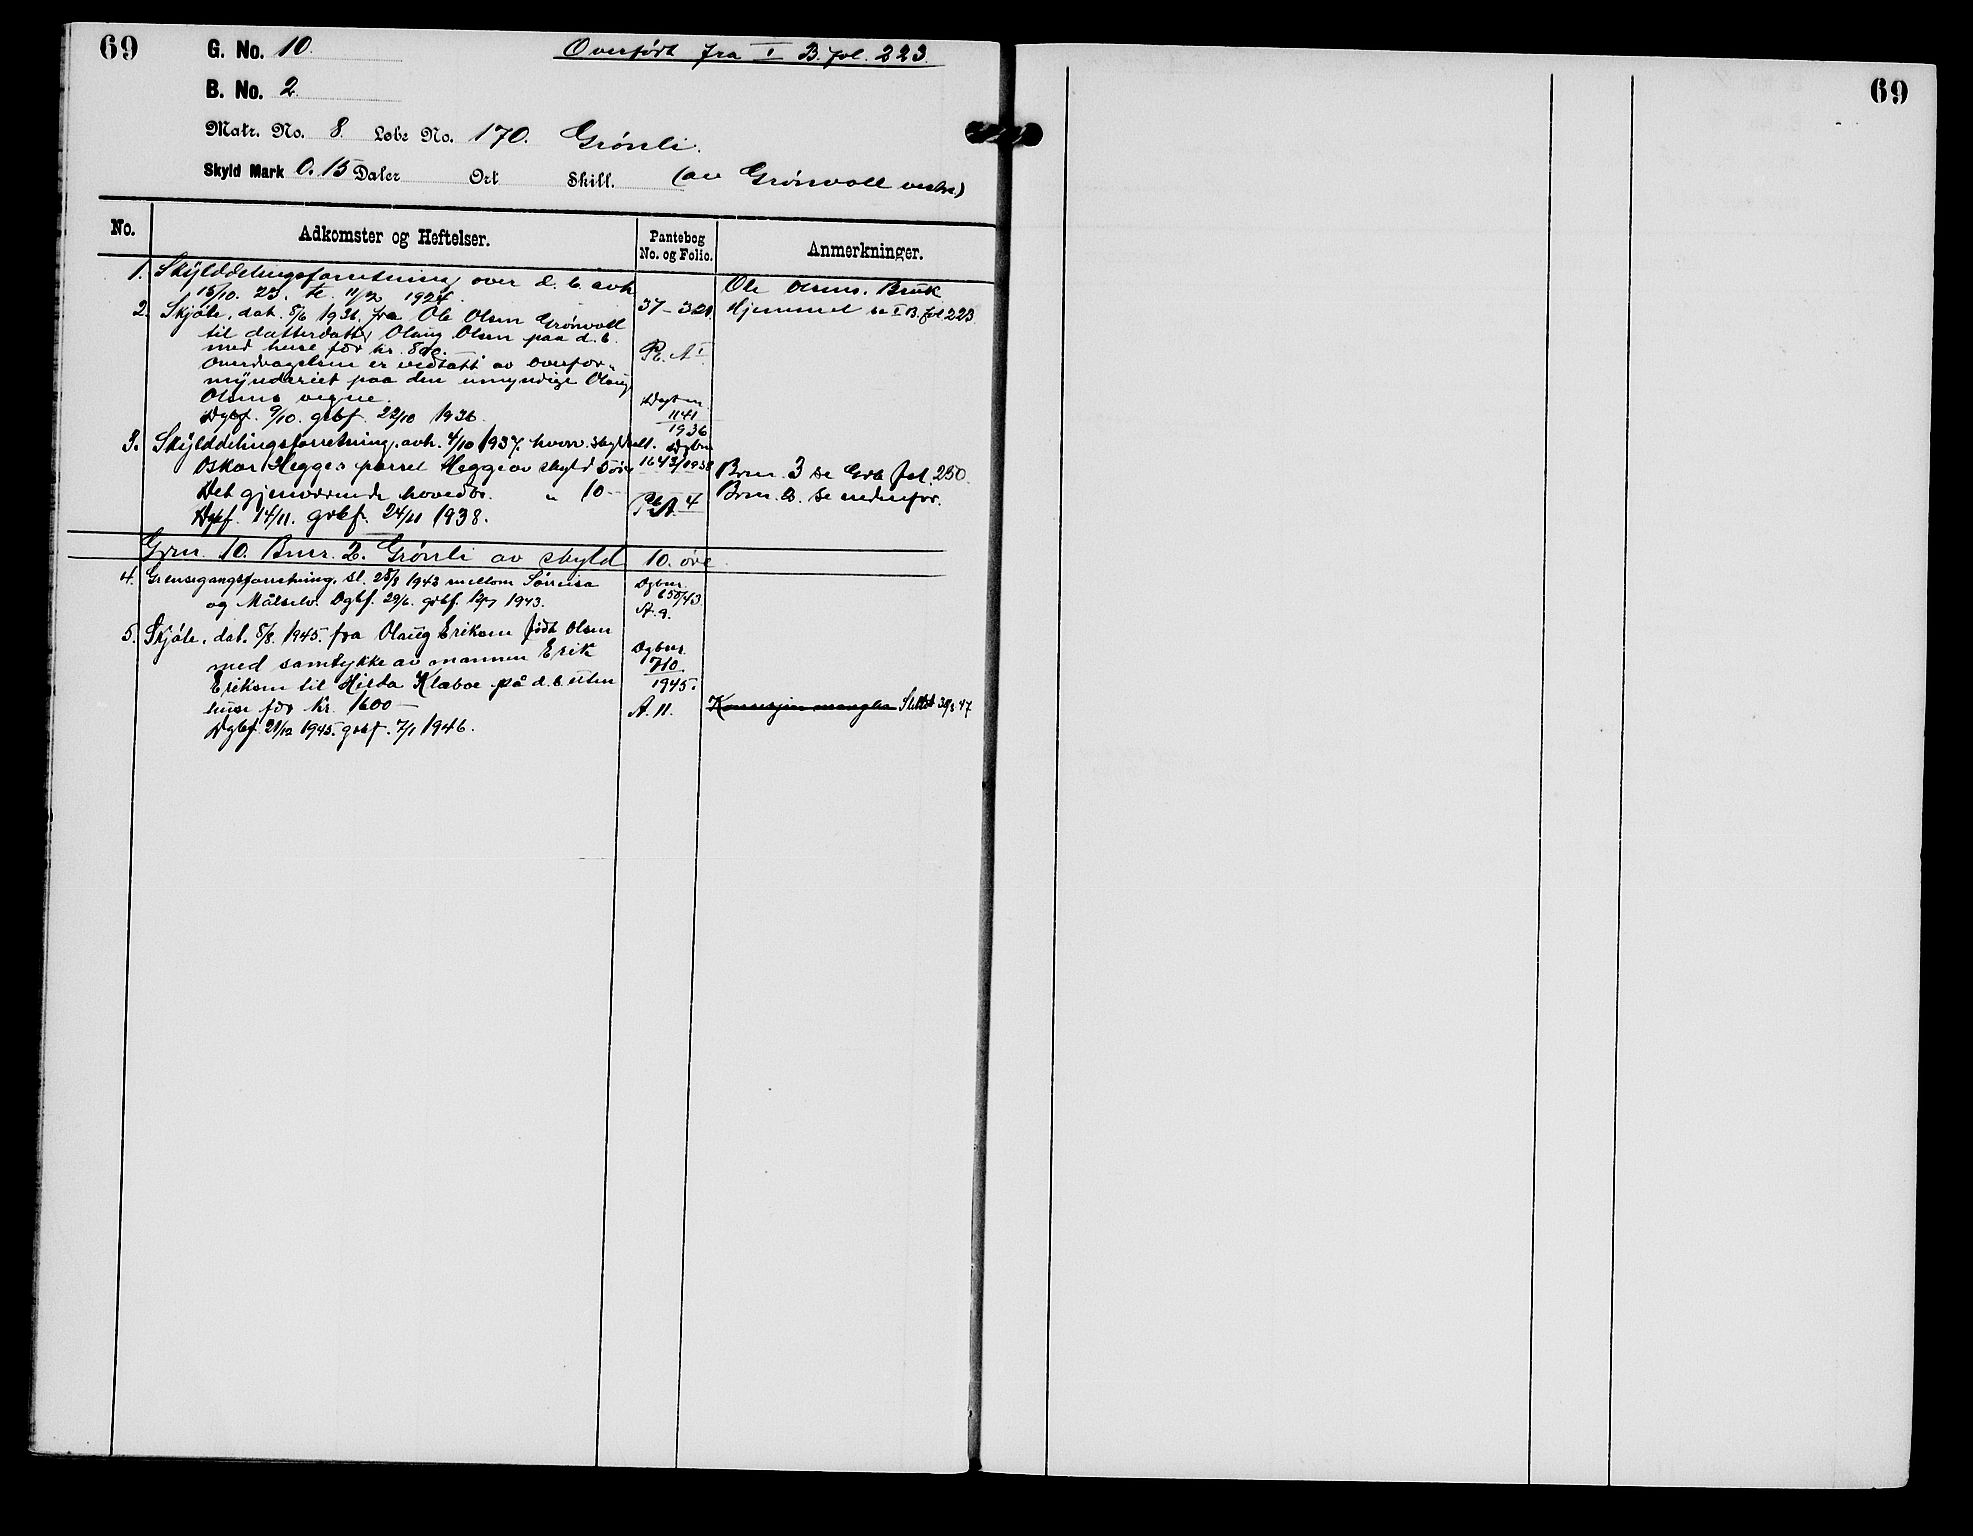 69
G. No. 10. Overført fra I B. fol. 223.
B. No. 2
Matr. No. 8. Løbe No. 170. Grønli.
Skyld Mark 0.15 Daler Ort Skill. (av Grønvoll vestre)
No. Adkomster og Heftelser. Pantebog No. og Folio. Anmerkninger.
1. Skylddelingsforretning over d. b. avh.
15/10. 23. tl. 11/2 1924. 37-321. Ole Olsens Bruk
2. Skjøte, dat. 5/6 1936 fra Ole Olsen Grønvoll Hjemmel se I B. fol 223
til datterdatter Olaug Olsen paa d. b.
med huse for kr.
Overdragelsen er vedtatt av overfor-
mynderiet paa den umyndige Olaug
Olsens vegne.
Dgbf. 9/10. grbf. 22/10 1936. Dagbnr. 1141 1936
3. Skylddelingsforretning, avh. 4/10 1937. hvorv. skyldsatt. Dgbnr. 1643/1938
Oskar Hegges parsel Hegge av skyld 5 øre Brnr. 3 se Grb fol. 250.
Det gjenværende hovedbr. " 10- Pb. A. 4 Brnr. 2. se nedenfor.
Dgbf. 14/11. grbf. 24/11 1938.
Grnr. 10. Bnr. 2. Grønli av skyld 10. øre.
4. Grensegangsforretning, sl. 28/8 1942 mellom Sørreisa Dgbnr.
og Målselv. Dgbf. 29/6. grbf. 1943. 650/43 A. 9.
5. Skjøte, dat. 5/8. 1945. fra Olaug Eriksen født Olsen
med samtykke av mannen Erik Dgbnr. 710
Eriksen til Hilda Klæboe på d. b. uten 1945.
huse for kr. 1600- A. 11. Konsesjon mangler Slettet 47
Dgbf. 21/12 1945. grbf. 7/1 1946.
69